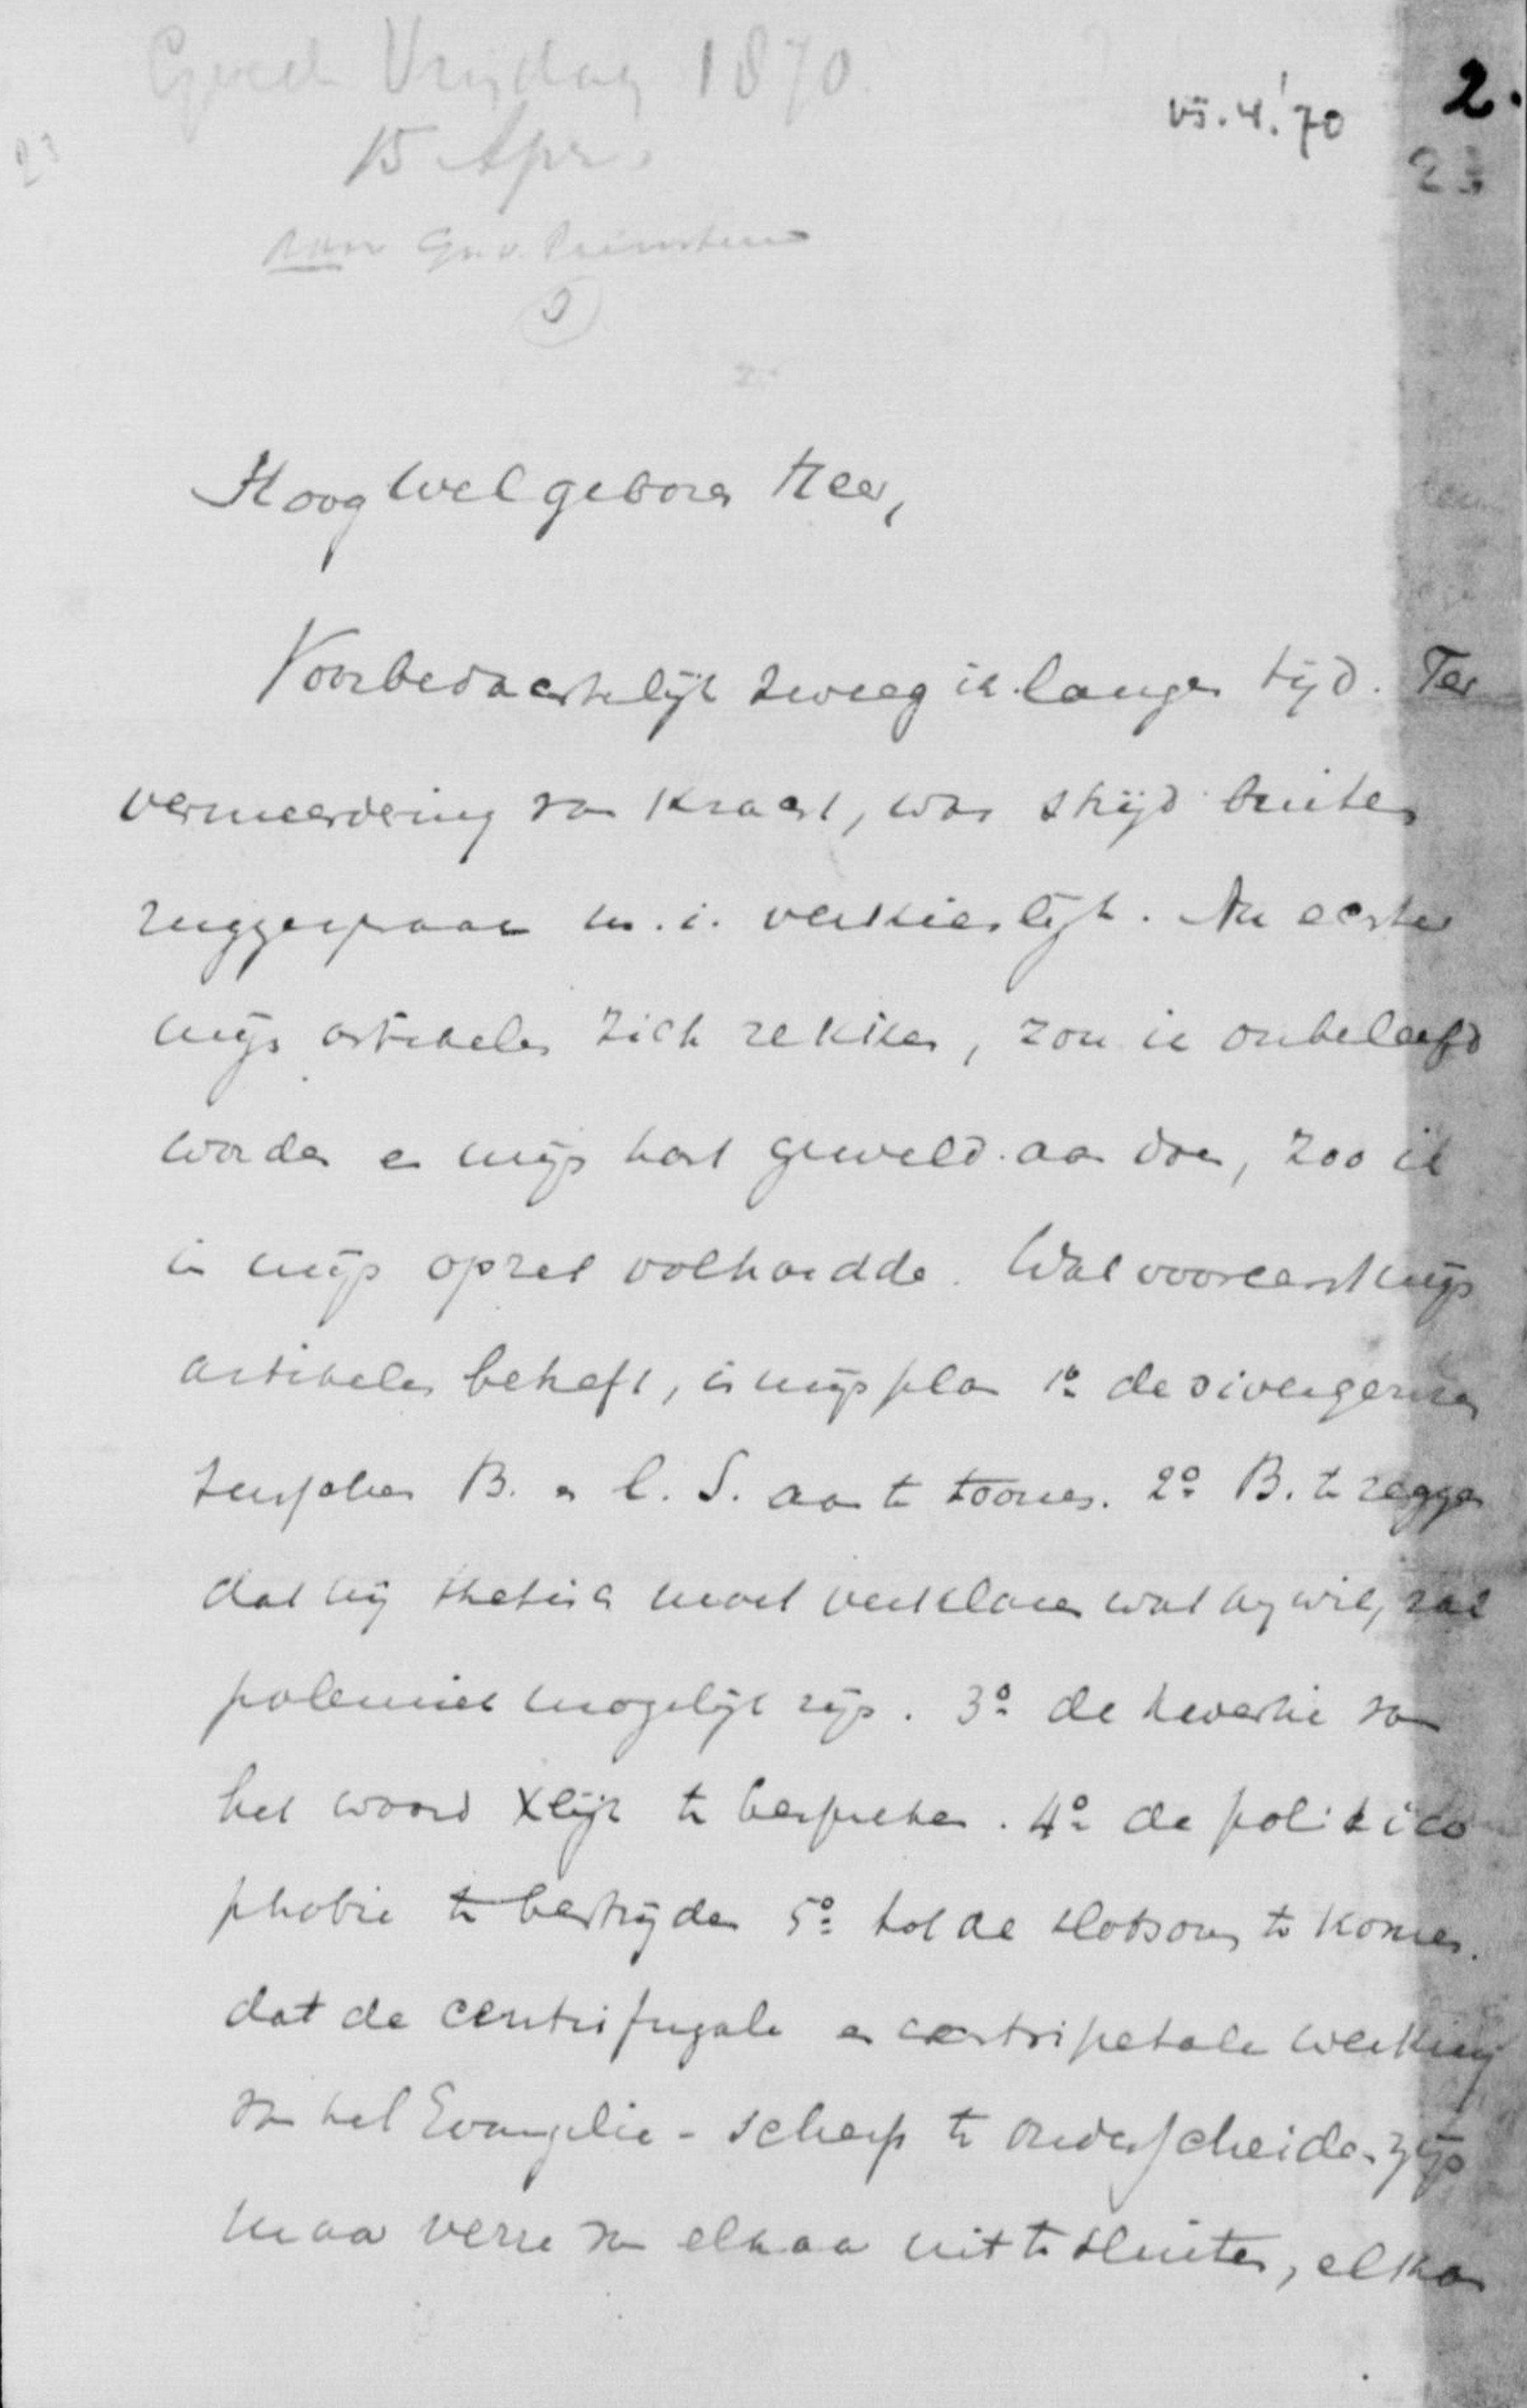 Goede Vrijdag 1870
15 Apr.
aan Gr. v. Prinsterer
15.4.'70
2.
23
Hoog Wel geboren Heer,
Voorbedachtelijk zweeg ik langen tijd. Ter
vermeerdering van kracht, was strijd buiten
ruggespraak m. i. verkieslijk. Nu echter
mijn artikelen zich rekken, zou ik onbeleefd
worden en mijn hart geweld aan doen, zoo ik
in mijn opzet volhardde. Wat vooreerst mijn
artikelen betreft, is mijn plan 1o de divergentie
tusschen B. en C. S. aan te toonen. 2o B. te zeggen
dat hij thetisch moet verklaren wat hij wil, zal
polemiek mogelijk zijn. 3o de kwestie van
het woord Xlijk te bespreken. 4o de politico
phobie te bestrijden 5o tot de slotsom te komen.
dat de centrifugale en centripetale werking
van het Evangelie - scherp te onderscheiden zijn
maar verre van elkaar uit te sluiten, elkaar